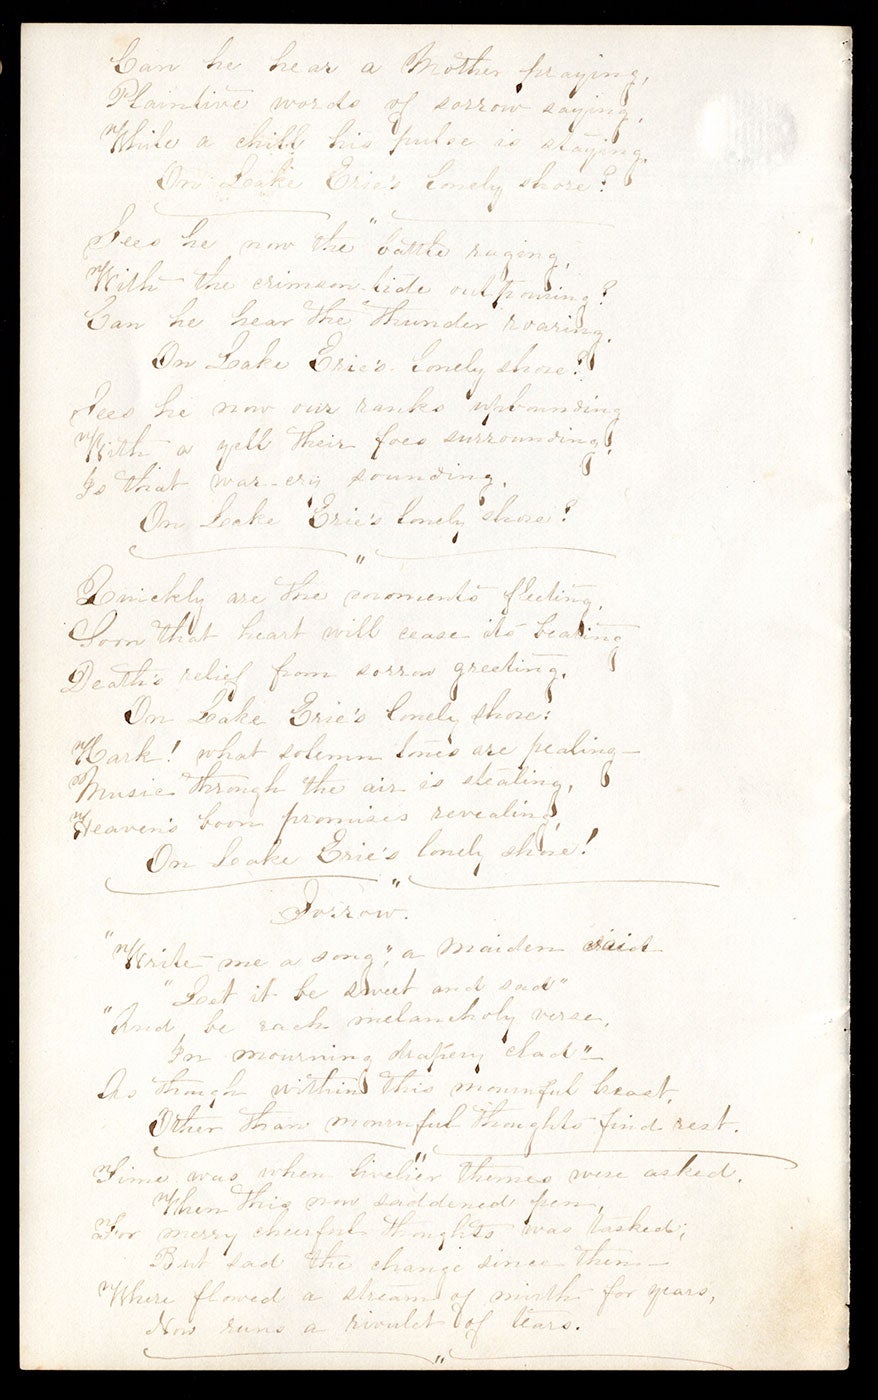 Can he hear a Mother praying,
Plaintive words of sorrow saying,
While a chill his pulse is staying,
On Lake Erie's lonely shore?
"
Sees he now the battle raging,
With the crimson tide outpouring?
Can he hear the thunder roaring,
On Lake Erie's lonely shore?
Sees he now our ranks upbounding
With a yell their foes surrounding,
Is that war-cry sounding,
On Lake Erie's lonely shore?
"
Quickly are the moments fleeting,
Soon that heart will cease its beating
Death's relief from sorrow greeting,
On Lake Erie's lonely shore:
Hark! what solemn tones are pealing—
Music through the air is stealing,
Heaven's boon promises revealing,
On Lake Erie's lonely shore!
"
Sorrow.
"Write me a song", a maiden said
"Let it be sweet and sad"
"And, be each melancholy verse,
In mourning drapery clad"—
As though within this mournful breast,
Other than mournful thoughts find rest.
"
Time was when livelier themes were asked,
When this now saddened pen,
For merry cheerful thoughts was tasked;
But sad the change since then—
Where flowed a stream of mirth for years,
Now runs a rivulet of tears.
"